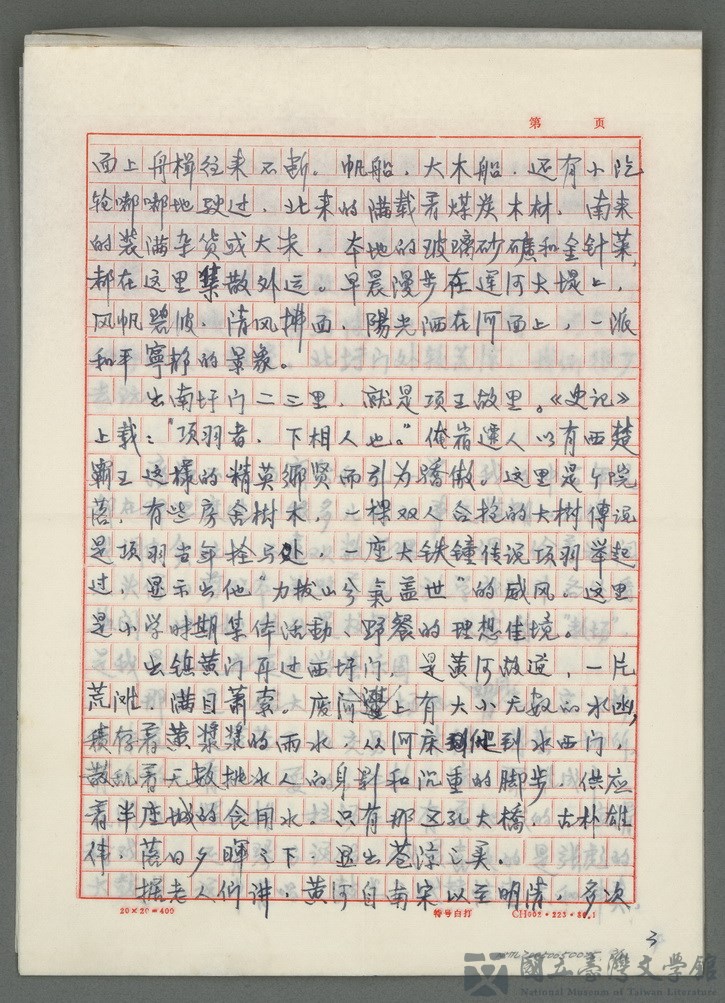 第 页
面上舟楫往来不断。帆船，大木船，还有小汽
轮嘟嘟地驶过，北来的满载着煤炭木材，南来
的装满杂货或大米，本地的玻璃砂矿和金针菜
都在这里集散外运。早晨漫步在运河大堤上，
风帆碧波，清风拂面，陽光洒在河面上，一派
和平寧静的景象。
出南圩门二三里，就是项王故里。《史记》
上载："项羽者，下相人也。"俺宿遷人以有西楚
霸王这樣的精英鄉贤而引为驕傲。这里是个院
落，有些房舍樹木，一棵双人合抱的大树傳说
是项羽当年拴马处，一座大铁鐘传说项羽举起
过，显示出他"力拔山兮氣盖世"的威风。这里
是小学时期集体活动、野餐的理想佳境。
出镇黄门再过西圩门，是黄河故道，一片
荒滩，满目萧索。废河上有大小无数的水凼，
積存着黄漿漿的雨水，从河床到水西门，
散乱着无数挑水人的身影和沉重的脚步，供应
着半座城的食用水。只有那五孔大橋，古朴雄
伟，落日夕暉之下，显出苍凉之美。
据老人们讲，黄河自南宋以至明清，多次
20×20=400 特号白打 CH002·223·80.1
3
國立臺灣文学館
National Museum of Taiwan Literature